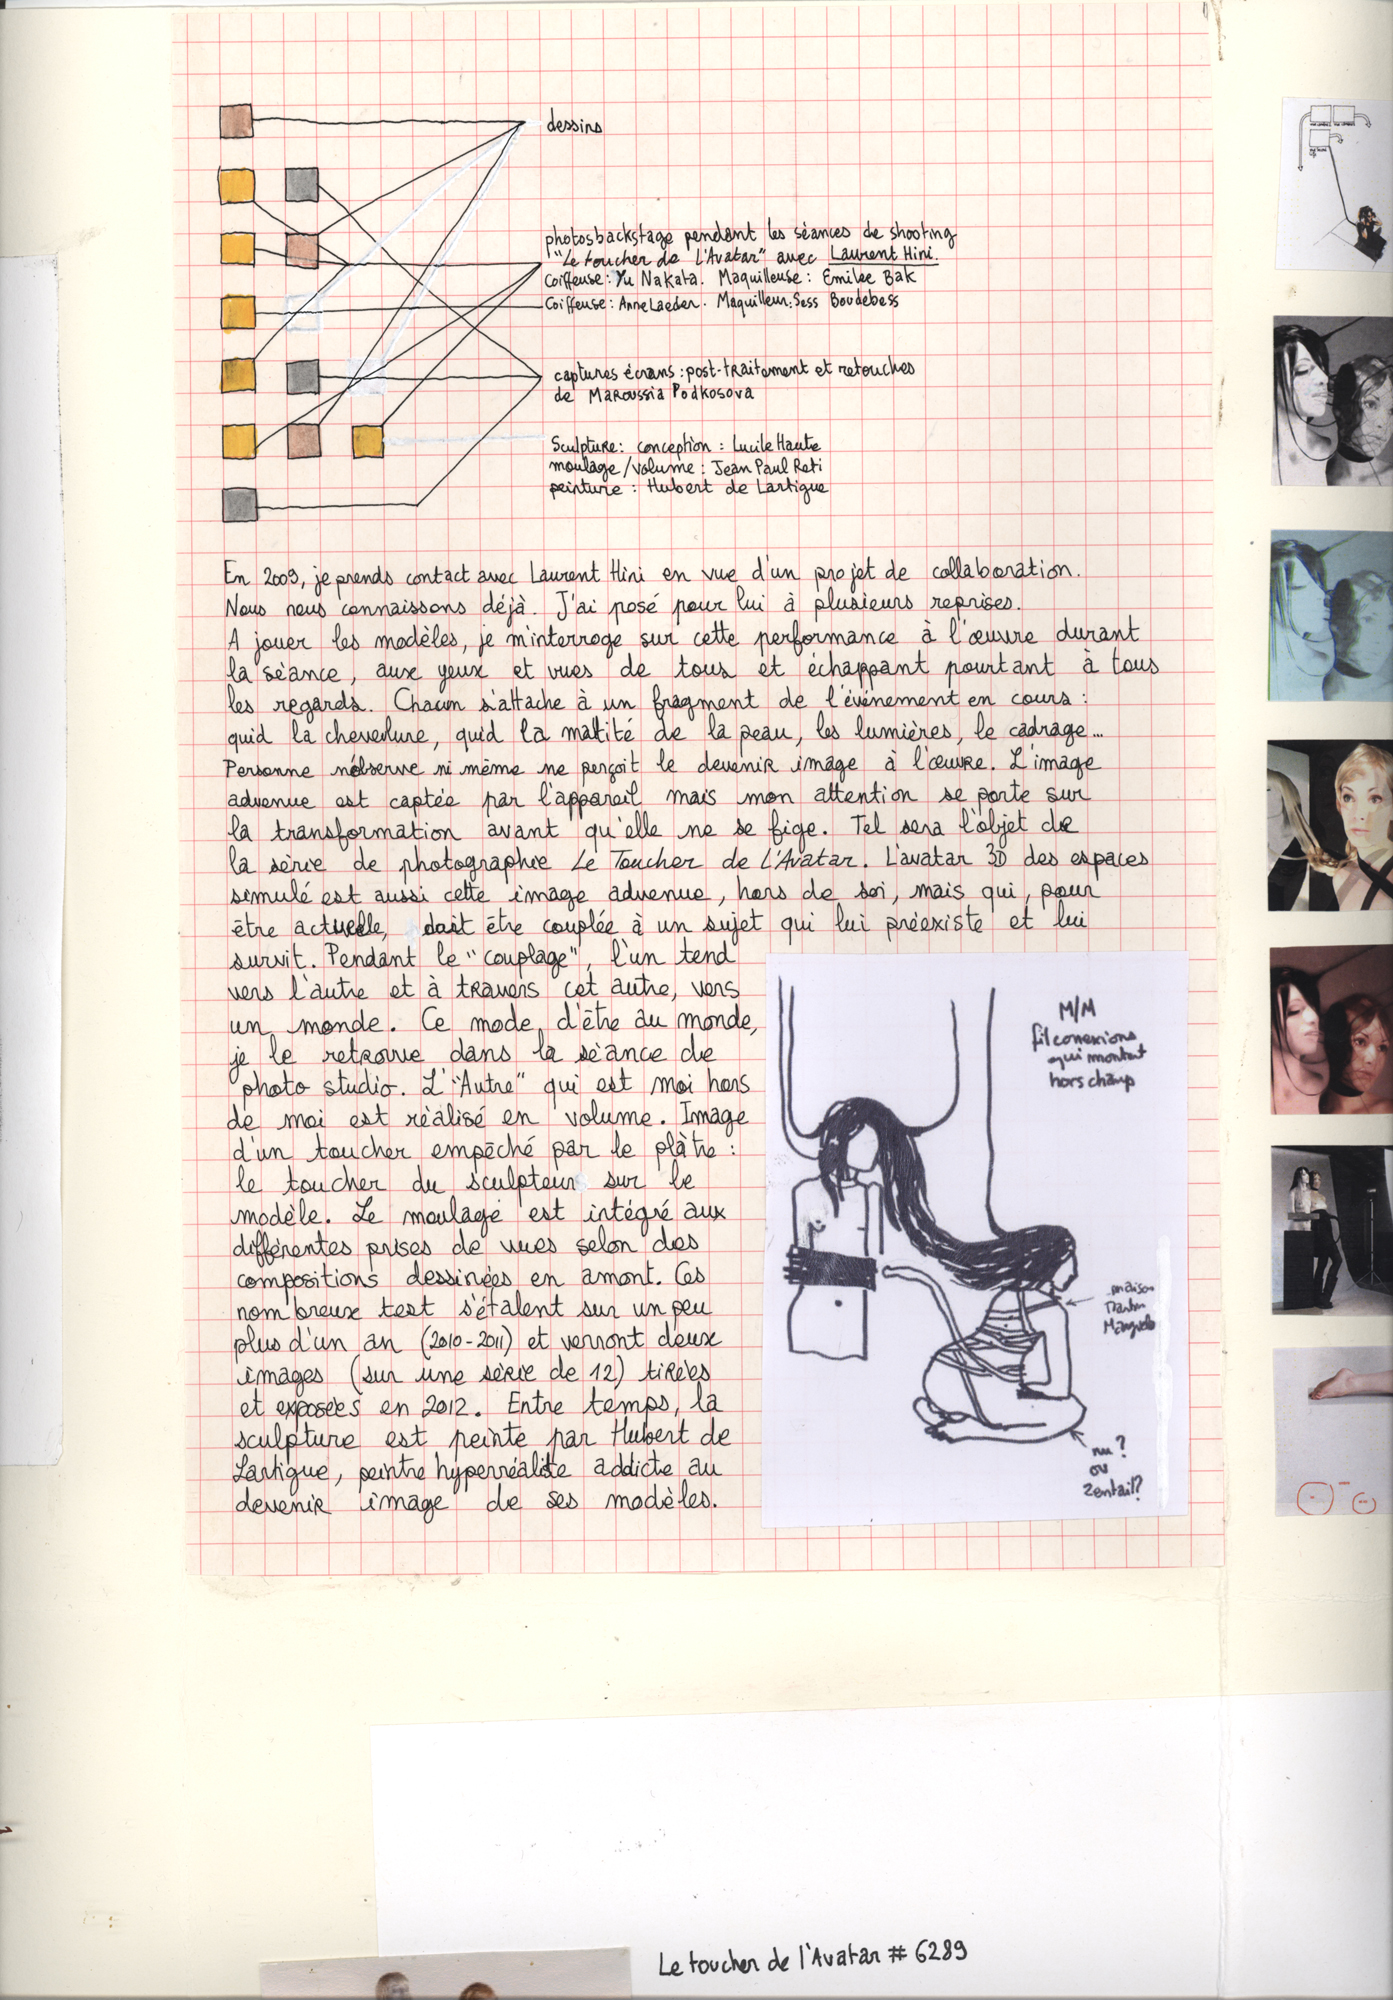 dessins
photos backstage pendant les séances de shooting
"Le toucher de L'Avatar" avec Laurent Hini.
Coiffeuse : Yu Nakata. Maquilleuse : Emilee Bak
Coiffeuse : Anne Laeder. Maquilleur : Sess Boudebess
captures écrans : post-traitement et retouches
de Maroussia Podkosova
Sculpture : conception : Lucile Haute
moulage / volume : Jean Paul Reti
peinture : Hubert de Lartigue
En 2009, je prends contact avec Laurent Hini en vue d'un projet de collaboration.
Nous nous connaissons déjà. J'ai posé pour lui à plusieurs reprises.
A jouer les modèles, je m'interroge sur cette performance à l'œuvre durant
la séance, aux yeux et vues de tous et échappant pourtant à tous
les regards. Chacun s'attache à un fragment de l'événement en cours :
quid la chevelure, quid la matité de la peau, les lumières, le cadrage...
Personne n'observe ni même ne perçoit le devenir image à l'œuvre. L'image
advenue est captée par l'appareil mais mon attention se porte sur
la transformation avant qu'elle ne se fige. Tel sera l'objet de
la série de photographie Le Toucher de L'Avatar. L'avatar 3D des espaces
simulé est aussi cette image advenue, hors de soi, mais qui, pour
être actuelle, doit être couplée à un sujet qui lui préexiste et lui
survit. Pendant le "couplage", l'un tend
vers l'autre et à travers cet autre, vers
un monde. Ce mode d'être au monde,
je le retrouve dans la séance de
photo studio. L'"Autre" qui est moi hors
de moi est réalisé en volume. Image
d'un toucher empêché par le plâtre :
le toucher du sculpteur sur le
modèle. Le moulage est intégré aux
différentes prises de vues selon des
compositions dessinées en amont. Ces
nombreux test s'étalent sur un peu
plus d'un an (2010-2011) et verront deux
images (sur une série de 12) tirées
et exposées en 2012. Entre temps, la
sculpture est peinte par Hubert de
Lartigue, peintre hyperréaliste addicte au
devenir image de ses modèles.
M/M
fil conexions
qui montent
hors champ
maison
Martin
Margiela
nu ?
ou
Zentail ?
Le toucher de l'Avatar # 6289